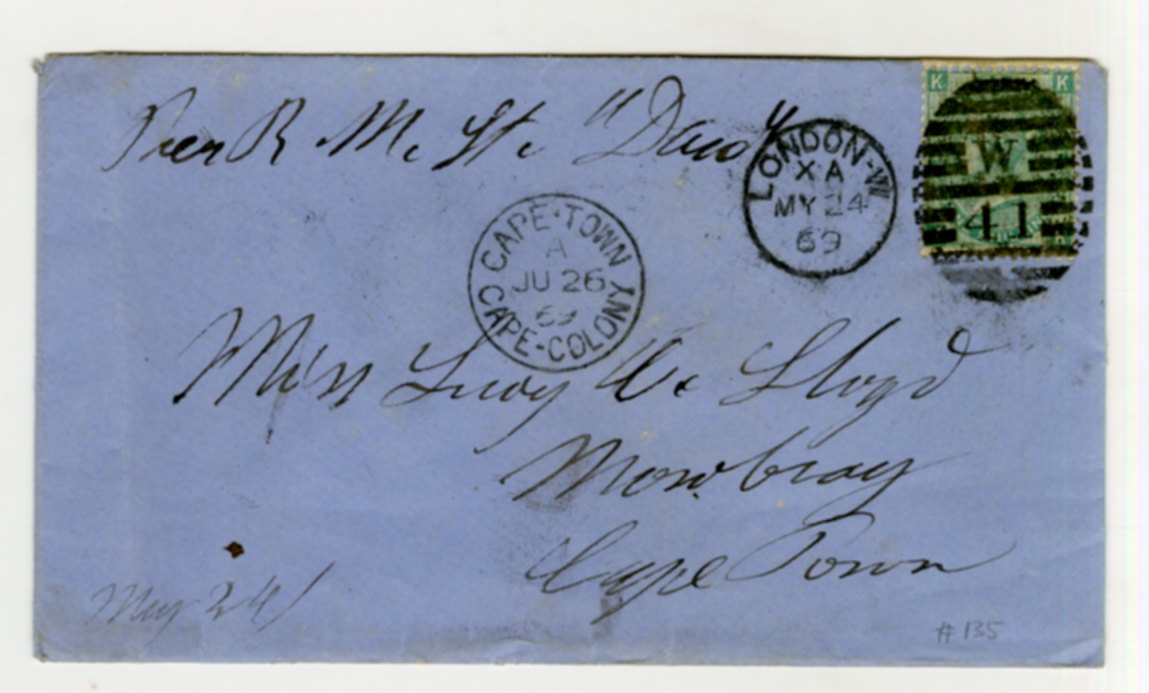 Per R. M. St.
K K
LONDON-W
XA
MY 24
69
W
41
CAPE-TOWN
A
JU 26
69
CAPE-COLONY
Miss Lucy C. Lloyd
Mowbray
Cape Town
May 24/
# 135